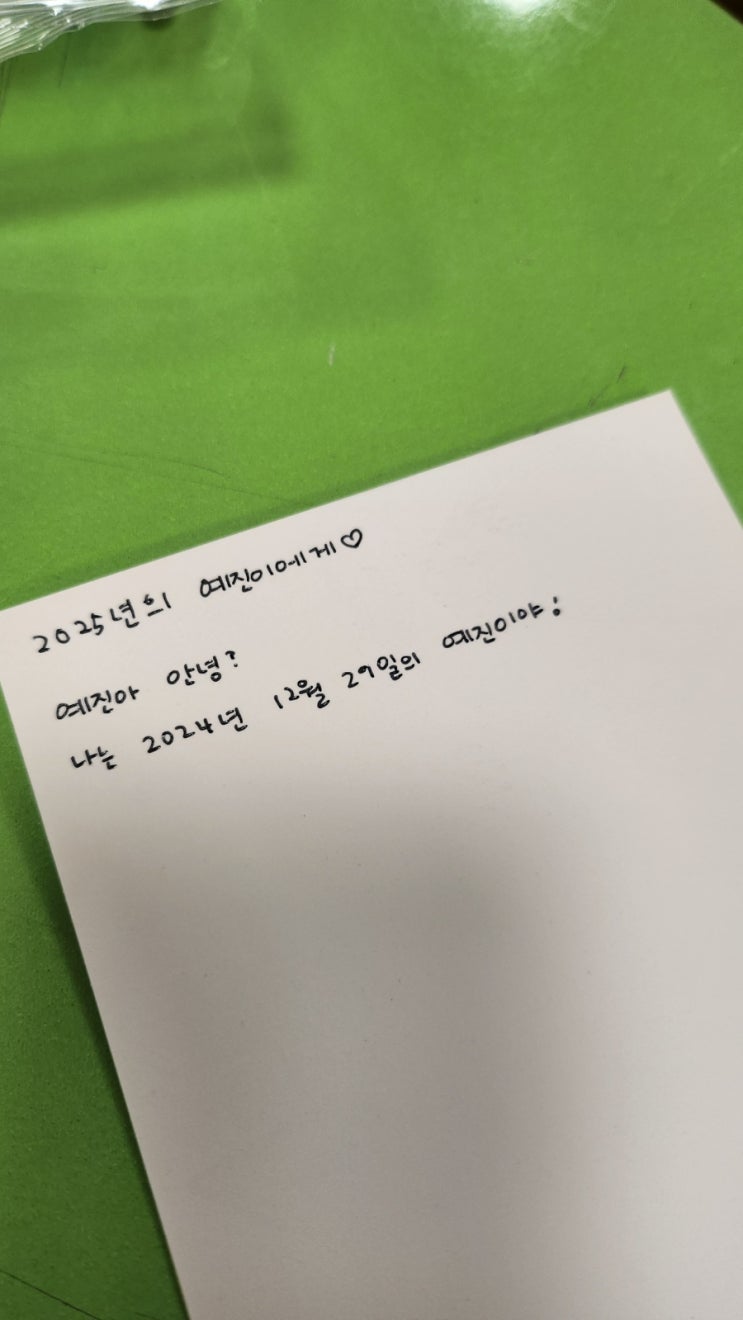 2025년의 예진이에게♡
예진아 안녕?
나는 2024년 12월 29일의 예진이야!